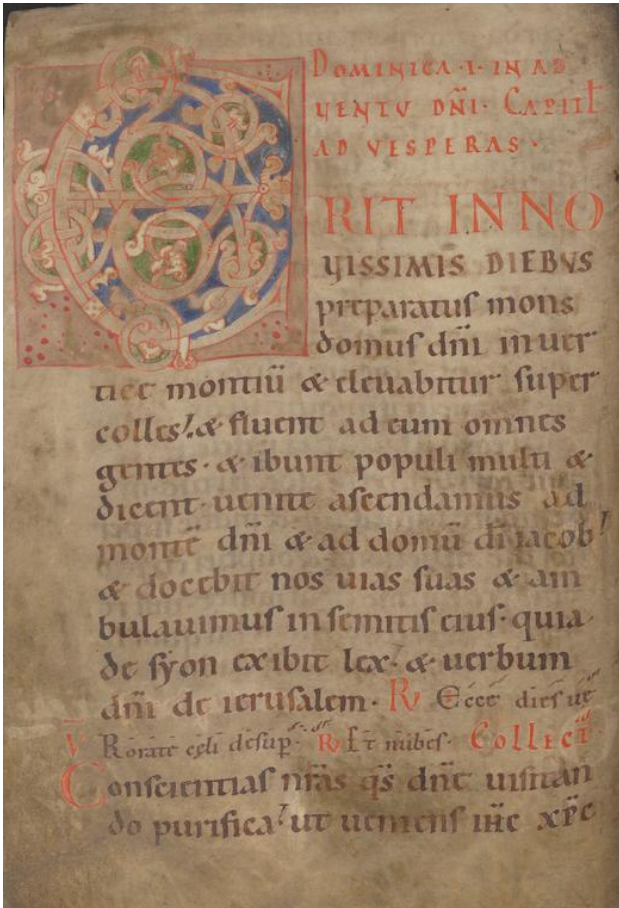 DOMINICA · I · IN AD
VENTV DNI · CAPITL
AD VESPERAS ·
ERIT IN NO
VISSIMIS DIEBVS
preparatus mons
domus dñi in uer
tice montiū & eleuabitur super
colles! & fluent ad eum omnes
gentes · & ibunt populi multi &
dicent · uenite ascendamus ad
montē dñi & ad domū di iacob!
& docebit nos uias suas & am
bulauimus in semitis eius · quia
de syon exibit lex · & uerbum
dñi de ierusalem · R Ecce dies ue
V Rorate celi desup · R Et nubes · Collect
Conscientias nras qs dne uisitan
do purifica! ut ueniens ihc xpc